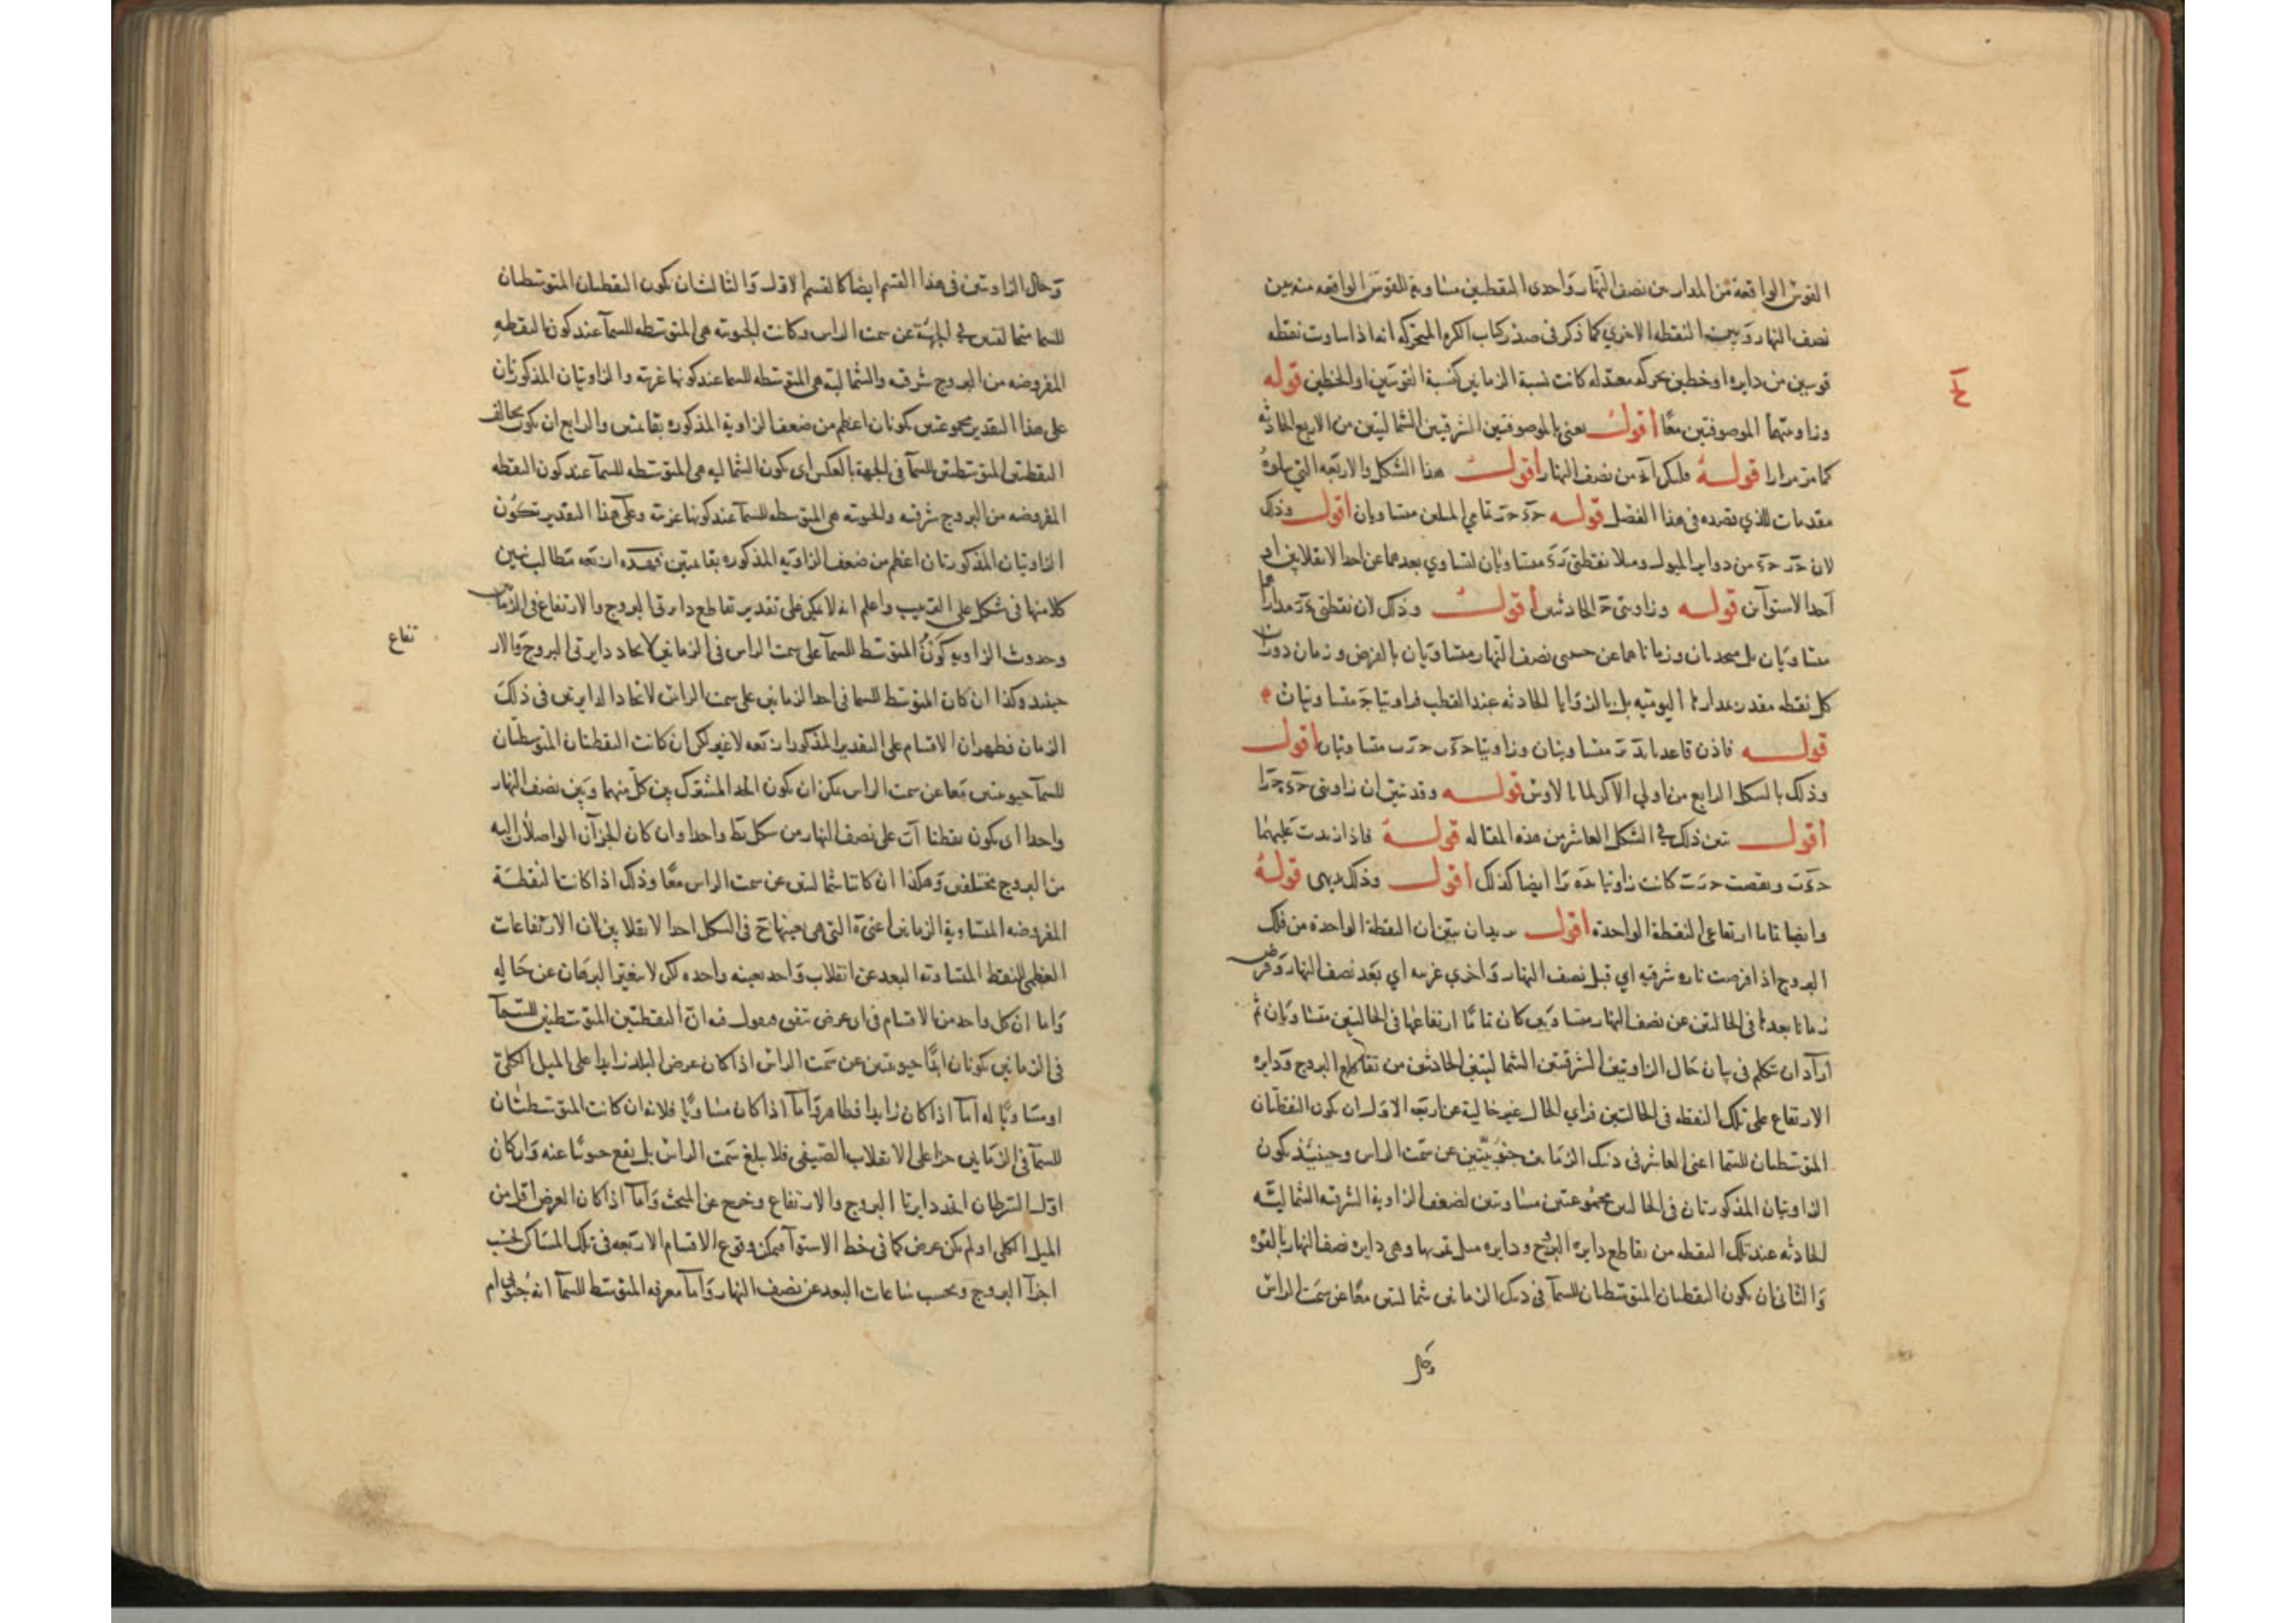 القوس الواقعة من المدار بين نصف النهار واحدى النقطتين مساوية للقوس الواقعه منه بين
نصف النهار وبين النقطه الاخري كما ذكر في صدر كتاب الكره المتحركه انه اذا ساوت نقطه
قوسين من دايره او خطين بحركه معتدله كانت نسبة الزمانين كنسبة القوسين او الخطين قوله
وزاويتهما الموصوفتين معًا أقول يعني بالموصوفتين الشرقيتين الشماليتين من الاربع الحادثه
كما مر مرارا قوله وليكن من نصف النهار أقول هذا الشكل والاربعه التي
مقدمات للذي قصده في هذا الفصل قوله متساويان اقول وذلك
لان من دواير الميول وميلا نقطتي متساويان لتساوي بعدهما عن احد الانقلابين او
احد الاستوآن قوله وزاويتي الحادثتين أقول وذلك لان نقطتي
متساويان بل متحدان وزمانا هما عن نصف النهار متساويان بالفرض وزمان
كل نقطه مقدر اليوميه بل بالزوايا الحادثه عند القطب فزاويتا متساويتان
قوله فاذن قاعدتا متساويتان وزاويتا متساويتان أقول
وذلك بالشكل الرابع من اولي الاكر لمانالاوس قوله وقد تبين ان زاويتي
أقول تبين ذلك في الشكل العاشر من هذه المقاله قوله فاذا زيدت عليهما
ونقصت كانت زاويتا ايضا كذلك أقول وذلك بديهي قوله
وايضا تماما ارتفاعي النقطة الواحدة أقول يريد ان يبين ان النقطة الواحدة من فلك
البروج اذا فرضت تاره شرقيه اي قبل نصف النهار واخري غربيه اي بعد نصف النهار وفرض
زمانا بعدها في الحالتين عن نصف النهار متساويين كان تماما ارتفاعها في الحالتين متساويان ثم
اراد ان يتكلم في بيان حال الزاويتين الشرقيتين الشماليتين الحادثتين من تقاطع البروج ودايره
الارتفاع على تلك النقطه في الحالتين فراي الحال غير خالية عن اربعه الاول ان تكون النقطتان
المتوسطتان للسما اعني العاشر في ذينك الزمانين جنوبيتين عن سمت الراس وحينئذ تكون
الزاويتان المذكورتان في الحالتين مجموعتين مساويتين لضعف الزاوية الشرقيه الشماليه
الحادثه عند تلك النقطه من تقاطع دايره البروج ودايره ميل تمر بها وهي دايره نصف النهار بالقوه
والثاني ان تكون النقطتان المتوسطتان للسمآ في ذينك الزمانين شماليتين معًا عن سمت الراس
وحال
وحال الزاويتين في هذا القسم ايضا كالقسم الاول والثالث ان تكون النقطتان المتوسطتان
للسما مختلفتين في الجهة عن سمت الراس وكانت الجنوبيه هي المتوسطه للسمآ عند كون النقطه
المفروضه من البروج شرقيه والشماليه هي المتوسطه للسما عند كونها غربيه والزاويتان المذكورتان
على هذا التقدير مجموعتين تكونان اعظم من ضعف الزاوية المذكوره بقائمتين والرابع ان تكون بخالف
النقطتين المتوسطتين للسمآ في الجهة بالعكس اي تكون الشماليه هي المتوسطه للسمآ عند كون النقطه
المفروضه من البروج شرقيه والجنوبيه هي المتوسطه للسمآ عند كونها غربيه وعلى هذا التقدير تكون
الزاويتان المذكورتان اعظم من ضعف الزاويه المذكوره بقائمتين فهذه اربعه مطالب نبين
كلا منها في شكل على الترتيب واعلم انه لا يمكن على تقدير تقاطع دايرتي البروج والارتفاع في الزمانين
وحدوث الزاويه كون المتوسط للسمآ على سمت الراس في الزمانين لاتحاد دايرتي البروج والار
تفاع
حينئذ وكذا ان كان المتوسط للسما في احد الزمانين على سمت الراس لاتحاد الدايرتين في ذلك
الزمان فظهر ان الاقسام على التقدير المذكور اربعه لا غير لكن ان كانت النقطتان المتوسطتان
للسمآ جنوبيتين معا عن سمت الراس يمكن ان يكون الحد المشترك بين كل منهما وبين نصف النهار
واحدا اي يكون نقطتا على نصف النهار من شكل واحدا وان كان الجزآن الواصلان اليه
من البروج مختلفين وهكذا ان كانتا شماليتين عن سمت الراس معًا وذلك اذا كانت النقطة
المفروضه المتساوية الزمانين اعني التي هي بعينها في الشكل احد الانقلابين لان الارتفاعات
العظمي للنقط المتساويه البعد عن انقلاب واحد بعينه واحده لكن لا يتغير البرهان عن حاله
واما ان كل واحد من الاقسام في اي عرض يتفق فنقول فيه ان النقطتين المتوسطتين للسمآ
في الزمانين تكونان ابدًا جنوبيتين عن سمت الراس اذا كان عرض البلد زايدا على الميل الكلي
او مساويًا له اما اذا كان زايدا فظاهر واما اذا كان مساويًا فلانه ان كانت المتوسطتان
للسمآ في الزمانين جزا على الانقلاب الصيفي فلا يبلغ سمت الراس بل يقع جنوبيًا عنه وان كان
اول السرطان اتحد دايرتا البروج والارتفاع وخرج عن المبحث واما اذا كان العرض اقل من
الميل الكلي او لم يكن عرض كما في خط الاستوآ فيمكن وقوع الاقسام الاربعه في تلك المساكن بحسب
اجزآ البروج وبحسب ساعات البعد عن نصف النهار واما معرفه المتوسط للسمآ انه جنوبي ام